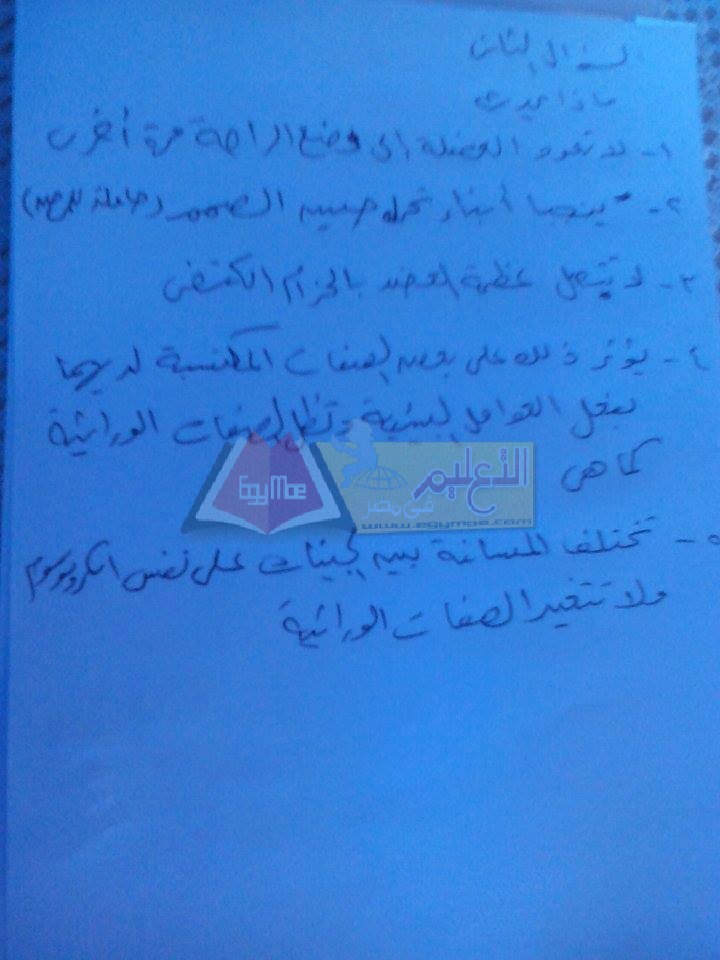 السؤال الثانى
ماذا يحدث
١- لا تعود العضلة إلى وضع الراحة مرة أخرى
٢- ينجبا أبناء تحمل جين الصمم (حاملة للمرض)
٣- لا تتصل عظمة العضد بالحزام الكتفى
٤- يؤثر ذلك على بعض الصفات المكتسبة لديهما
بفعل العوامل البيئية وتظل الصفات الوراثية
كما هى
EgyMoe
التعليم
فى مصر
www.egymoe.com
٥- تختلف المسافة بين الجينات على نفس الكروموسوم
ولا تتغير الصفات الوراثية